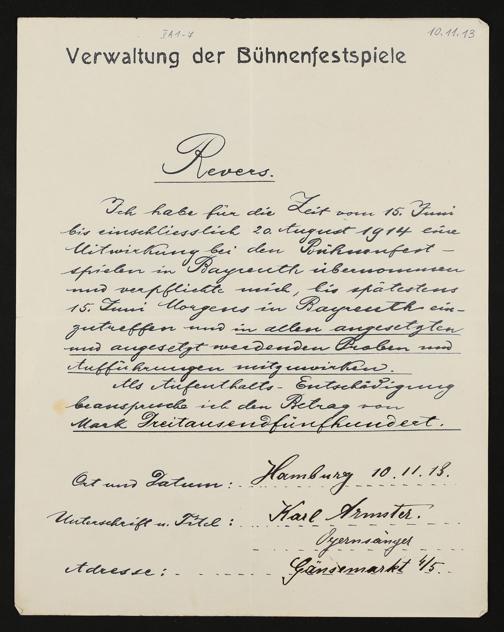 IA1-7
10.11.13
Verwaltung der Bühnenfestspiele
Revers.
Ich habe für die Zeit vom 15. Juni
bis einschliesslich 20. August 1914 eine
Mitwirkung bei den Bühnenfest-
spielen in Bayreuth übernommen
und verpflichte mich, bis spätestens
15. Juni Morgens in Bayreuth ein-
zutreffen und in allen angesetzten
und angesetzt werdenden Proben und
Aufführungen mitzuwirken.
Als Aufenthalts-Entschädigung
beanspruche ich den Betrag von
Mark Dreitausendfünfhundert.
Ort und Datum: Hamburg 10.11.13.
Unterschrift u. Titel: Karl Armster.
Opernsänger
Adresse: Gänsemarkt 4/5.